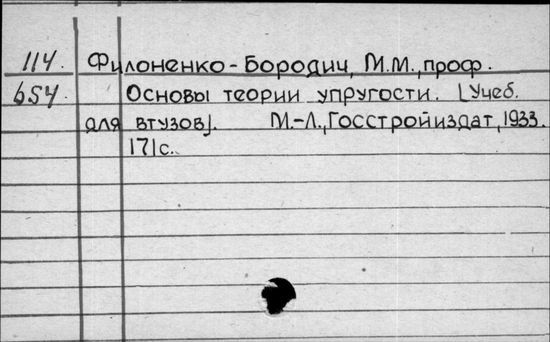 114. Филоненко-Бородич, М.М., проф.
654. Основы теории упругости. [Учеб.
для втузов]. М.-Л., Госстройиздат, 1933.
171с.